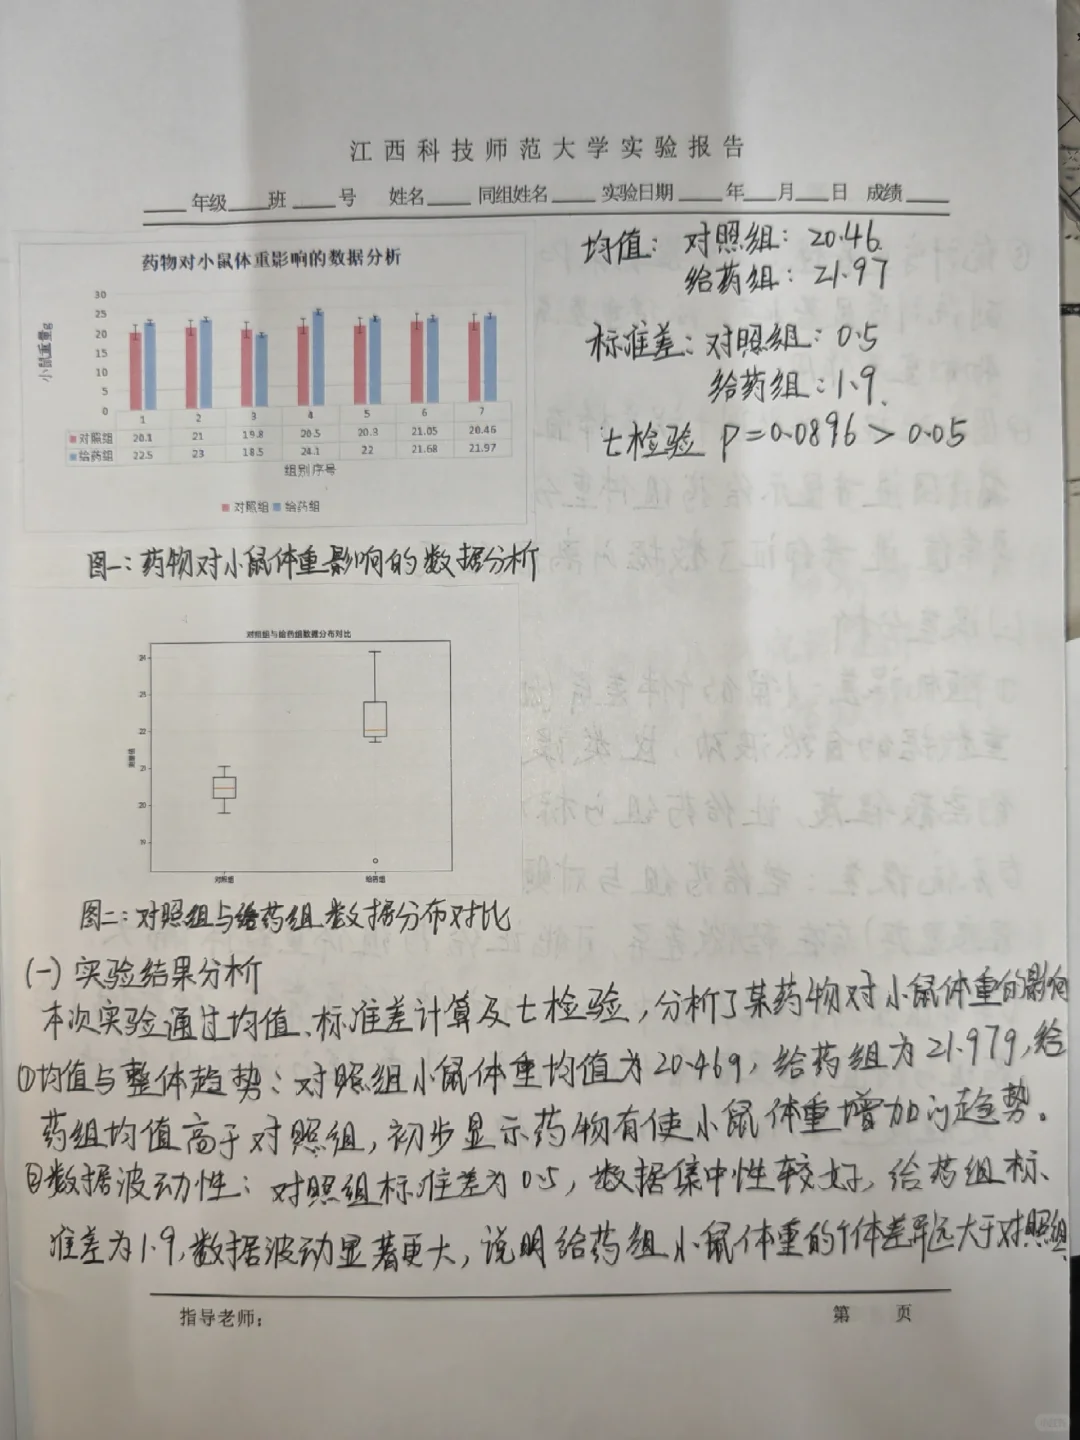 江西科技师范大学实验报告
年级 班 号 姓名 同组姓名 实验日期 年 月 日 成绩
药物对小鼠体重影响的数据分析
小鼠重量g
30
25
20
15
10
5
0
1 2 3 4 5 6 7
对照组 20.1 21 19.8 20.5 20.3 21.05 20.46
给药组 22.5 23 18.5 24.1 22 21.68 21.97
组别序号
对照组 给药组
均值：对照组：20.46
给药组：21.97
标准差：对照组：0.5
给药组：1.9
t检验 P=0.0896>0.05
图一：药物对小鼠体重影响的数据分析
对照组与给药组数据分布对比
24
23
22
21
20
19
对照组 给药组
图二：对照组与给药组数据分布对比
(一)实验结果分析
本次实验通过均值、标准差计算及t检验，分析了某药物对小鼠体重的影响
①均值与整体趋势：对照组小鼠体重均值为20.46g，给药组为21.97g，给
药组均值高于对照组，初步显示药物有使小鼠体重增加的趋势。
②数据波动性：对照组标准差为0.5，数据集中性较好，给药组标
准差为1.9，数据波动显著更大，说明给药组小鼠体重的个体差异远大于对照组
指导老师： 第 页